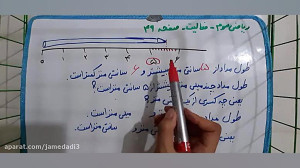 ریاضی سوم - فعالیت - صفحه ۳۹
۰ ۱ ۲ ۳ ۴ ۵ ۶
طول مداد از ۵ سانتی متر بیشتر و ۶ سانتی متر کمتر است.
طول مداد چند میلی متر از ۵ سانتی متر است؟
یعنی چه کسری از
طول مداد و میلی متر است.
یعنی سانتی متر است.
aparat.com/jamedadi3